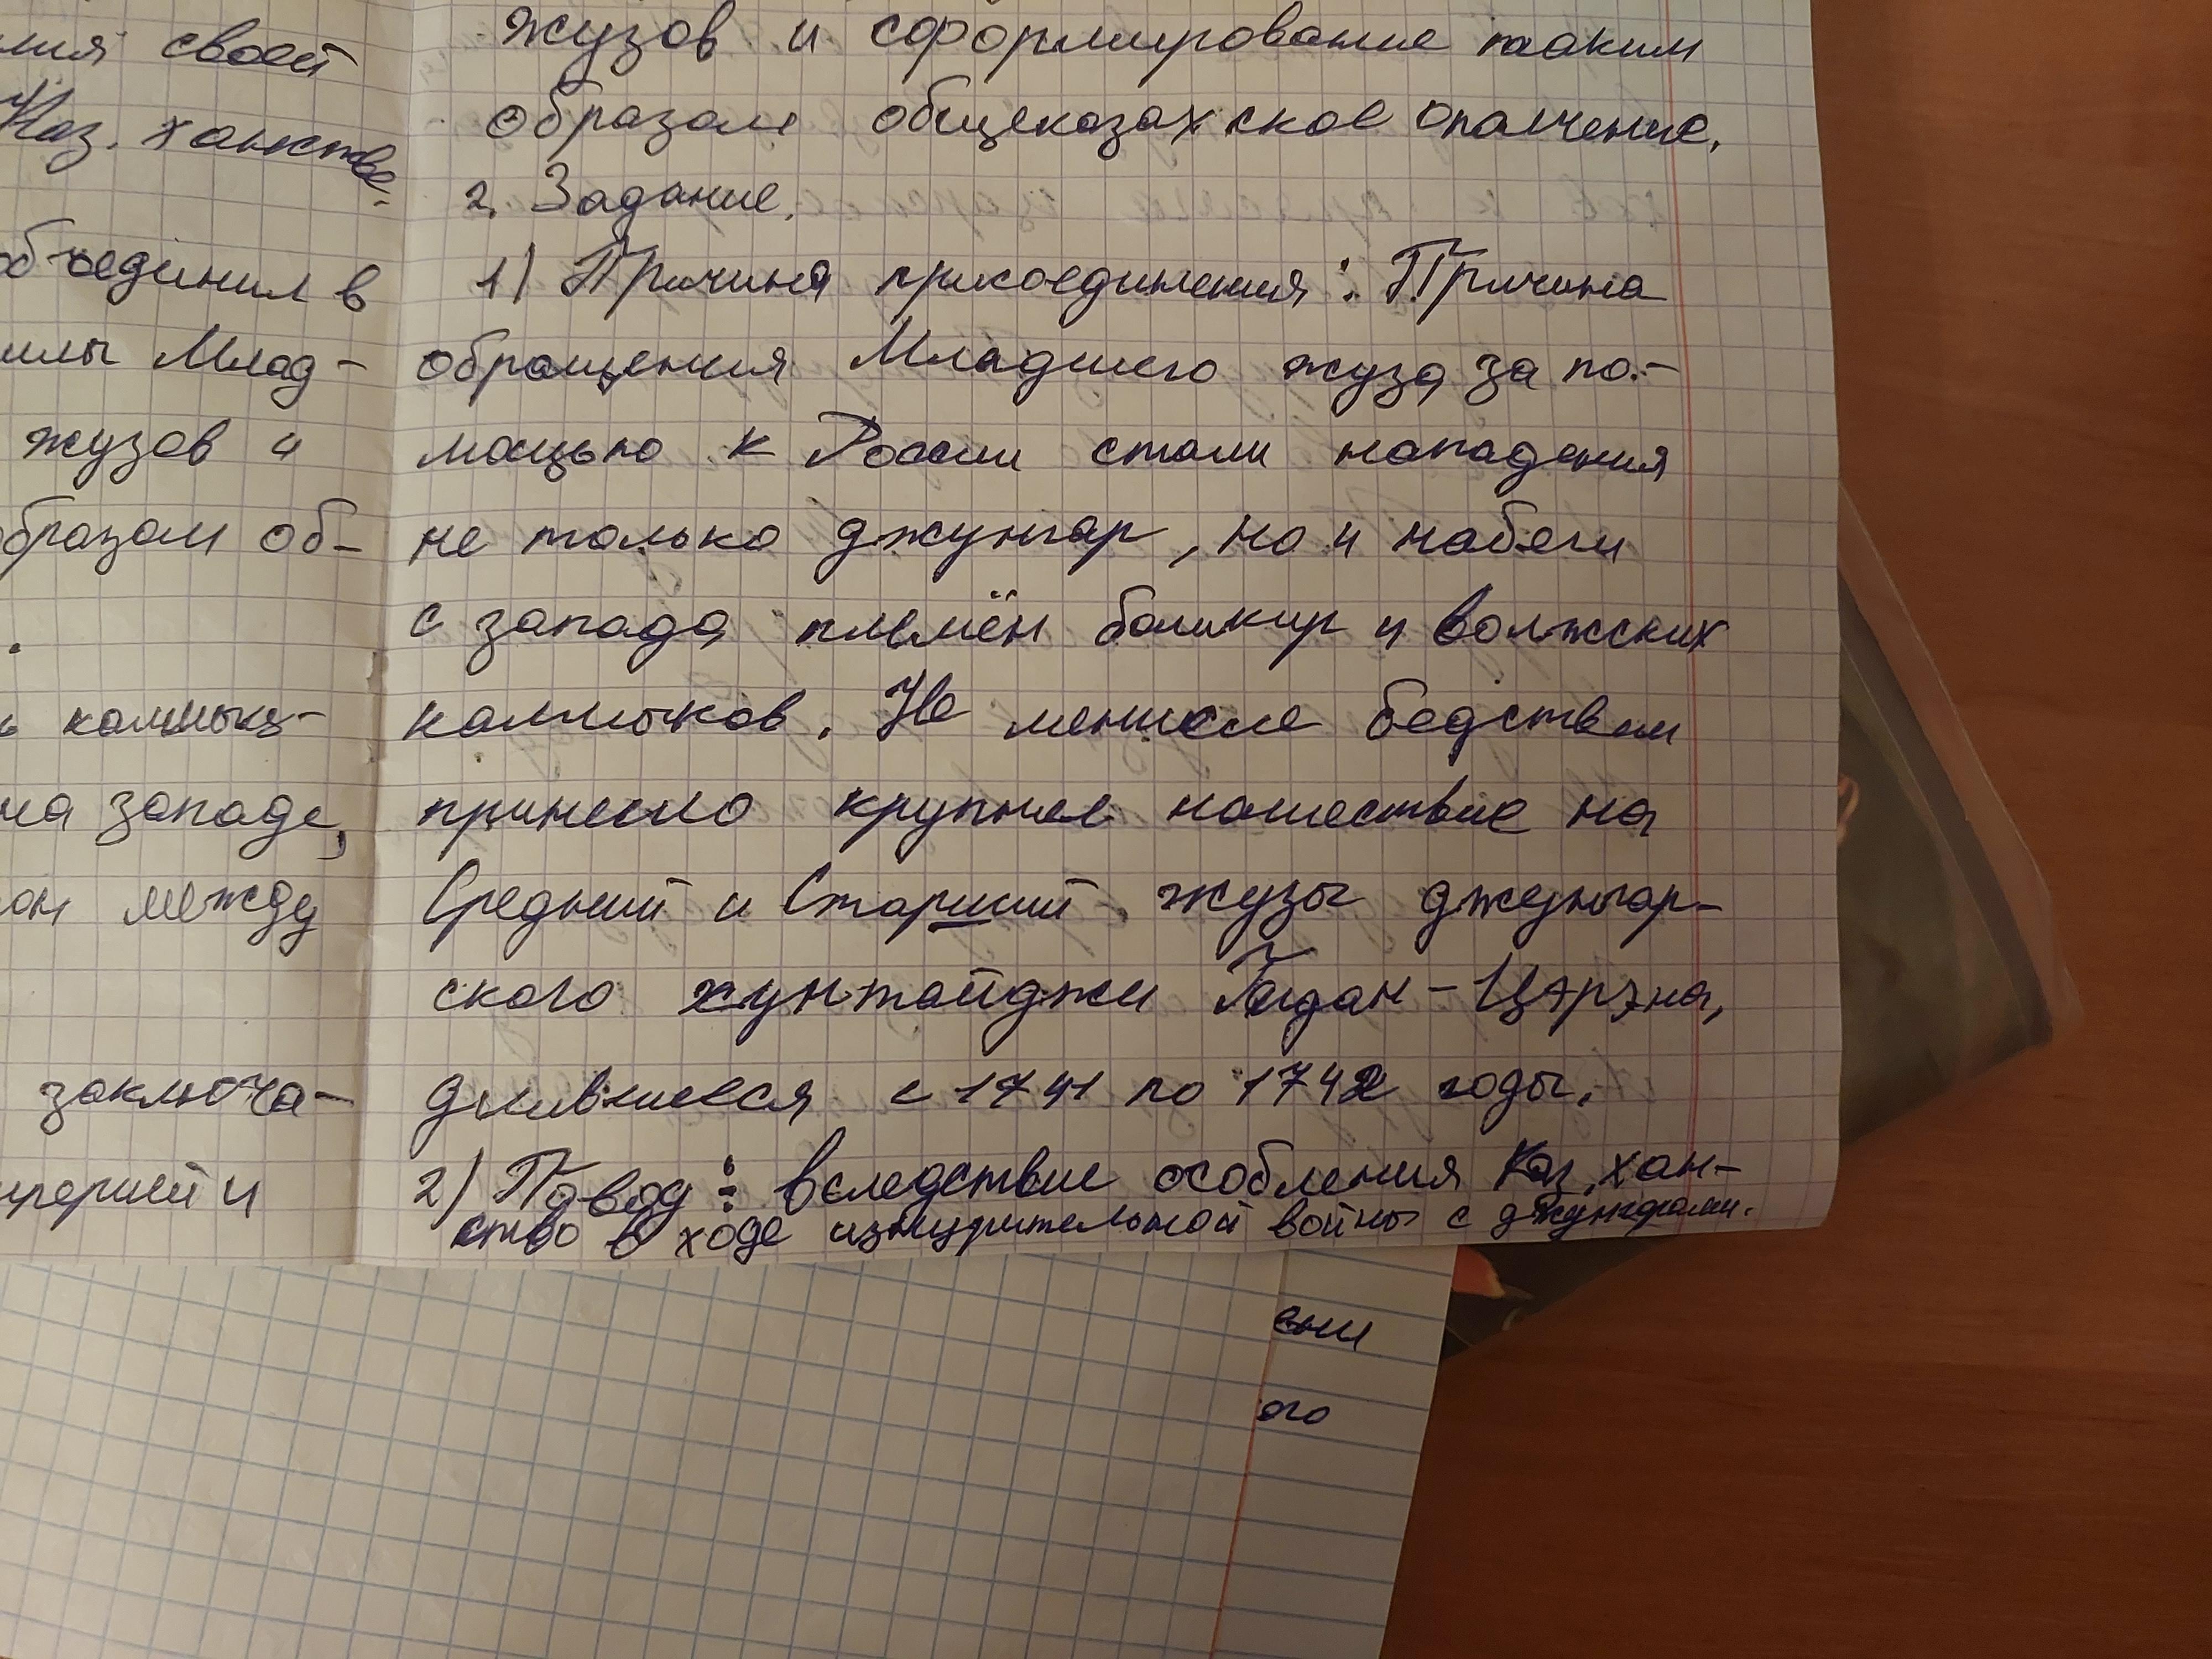 ния своей
Каз. ханстве.
объединил в
илы Млад-
жузов и
образом об-
.
ь калмыку-
на западе,
он между
заключа-
ирершей и
жузов и сформирование тааким
образом общеказахское ополчение.
2. Задание.
1) Причина присоединения: Причина
обращения Младшего жуза за по-
мощью к России стали нападения
не только джунгар, но и набеги
с запада племён башкир и волжских
калмыков. Не меншее бедствам
принесло крупнее нашествие на
Средний и Старший жузы джунгар-
ского хунтайджи Галдан-Цэрэна,
длившееся с 1741 по 1742 годы.
2) Повод: вследствие особления Каз. хан-
ство в ходе изнурительной войны с джунгарами.
ени
ого